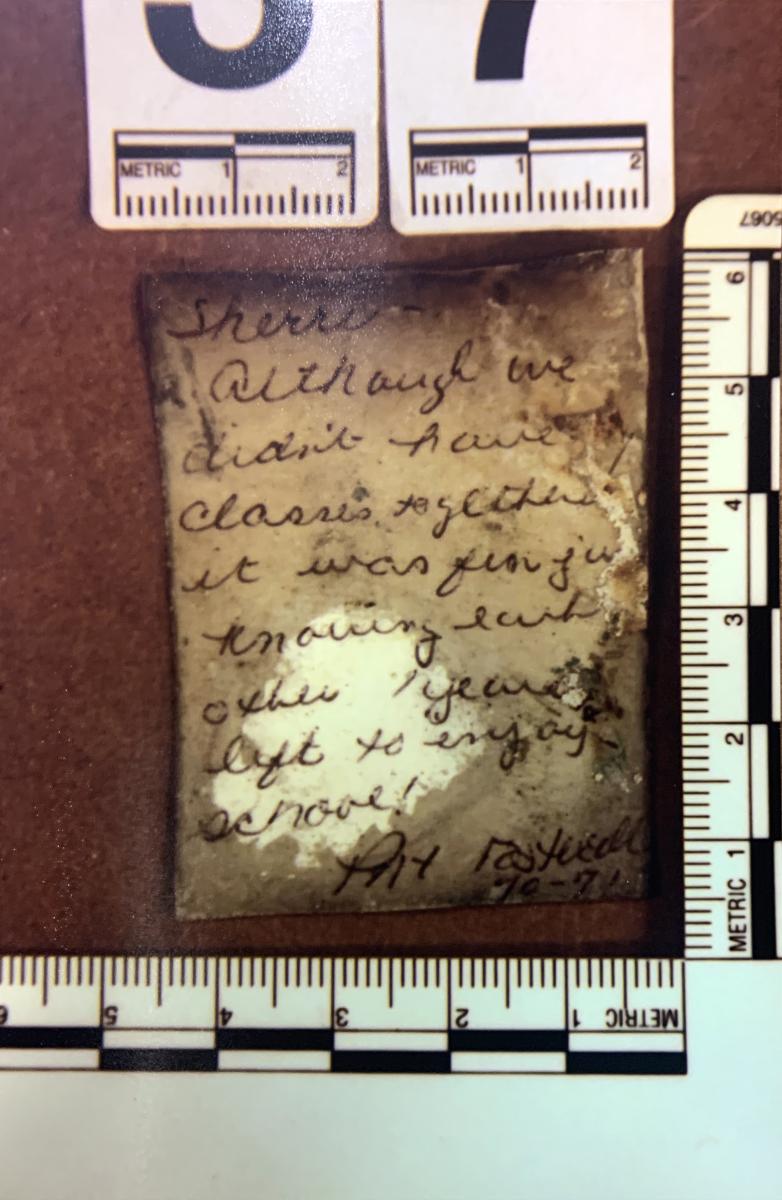 5 7
METRIC 1 2 METRIC 1 2
Sherri -
Although we
didn't have
classes together
it was fun ju
knowing each
other 1 year
left to enjoy
school!
70-71
5067
6
5
4
3
2
METRIC 1
6 5 4 3 2 1 METRIC